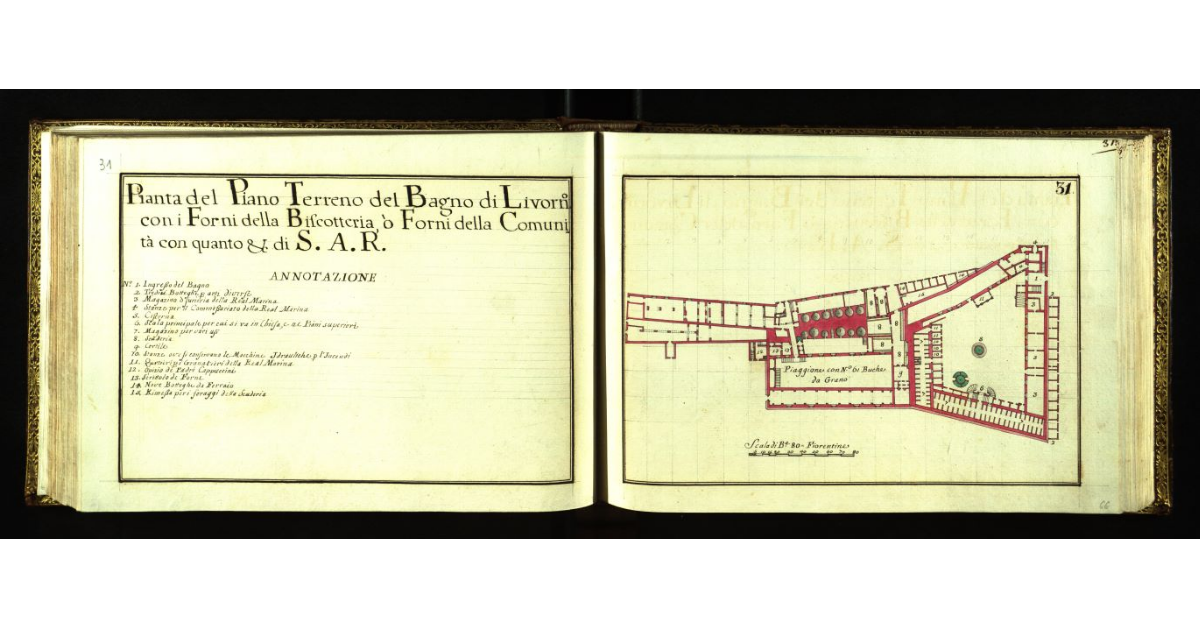 31
Pianta del Piano Terreno del Bagno di Livorn̊
con i Forni della Biscotteria, ò Forni della Comuni
tà con quanto &. di S. A. R.
ANNOTAZIONE
N.º 1. Ingresso del Bagno
2. Botteghe, p usi diversi
3. Magazino della Real Marina
4. Stanze per il Commissariato della Real Marina
5. Cisterna
6. Scala principale per cui si va in Chiesa, e ai Piani superiori
7. Magazino per vari usi
8. Scuderia
9. Cortile
10. Stanze ove si conservano le Machine Idrauliche p l'Incendi
11. Quartiere Granatieri della Real Marina
12. Ospizio di Padri Cappuccini
13. de Forni
14. Nove Botteghe di Fornaio
15. Rimessa per i foraggi della Scuderia
31
Piaggione con N.º 61 Buche
da Grano
Scala di B.ª 80 Fiorentine
66